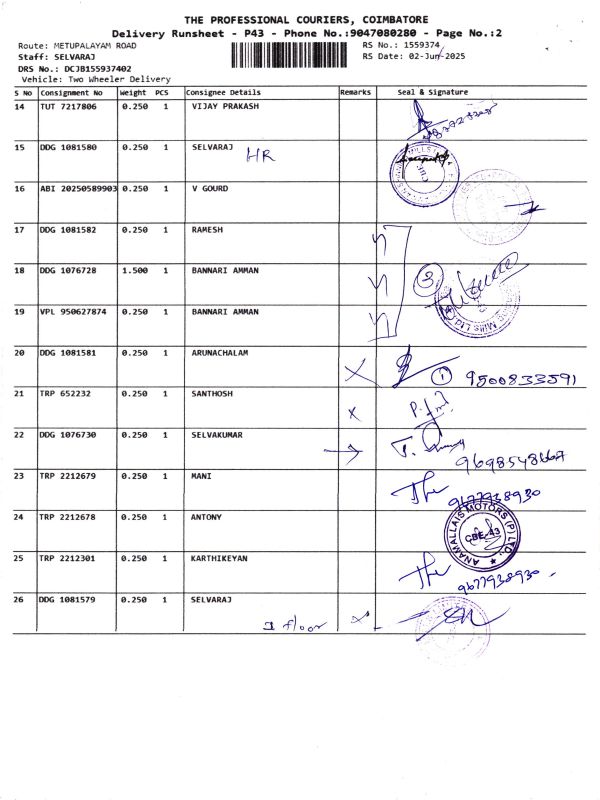 THE PROFESSIONAL COURIERS, COIMBATORE
Delivery Runsheet - P43 - Phone No.:9047080280 - Page No.:2
Route: METUPALAYAM ROAD RS No.: 1559374
Staff: SELVARAJ RS Date: 02-Jun-2025
DRS No.: DCJB155937402
Vehicle: Two Wheeler Delivery
S No Consignment No Weight PCS Consignee Details Remarks Seal & Signature
14 TUT 7217806 0.250 1 VIJAY PRAKASH
15 DDG 1081580 0.250 1 SELVARAJ
HR
16 ABI 20250589903 0.250 1 V GOURD
17 DDG 1081582 0.250 1 RAMESH
18 DDG 1076728 1.500 1 BANNARI AMMAN
3
19 VPL 950627874 0.250 1 BANNARI AMMAN
Mills Ltd
20 DDG 1081581 0.250 1 ARUNACHALAM
X 1 9500833591
21 TRP 652232 0.250 1 SANTHOSH
X
22 DDG 1076730 0.250 1 SELVAKUMAR
23 TRP 2212679 0.250 1 MANI
9677938930
24 TRP 2212678 0.250 1 ANTONY
ANAMALLAIS MOTORS (P) LTD.
CBE-43
25 TRP 2212301 0.250 1 KARTHIKEYAN
9677938930
26 DDG 1081579 0.250 1 SELVARAJ
1 floor X